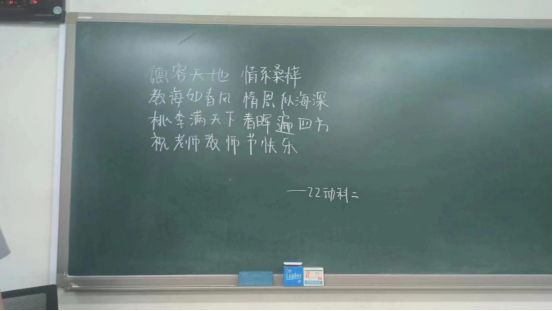 德容天地 情系桑梓
教每如春风 情恩似海深
桃李满天下 春晖遍四方
祝老师教师节快乐
——22动科二